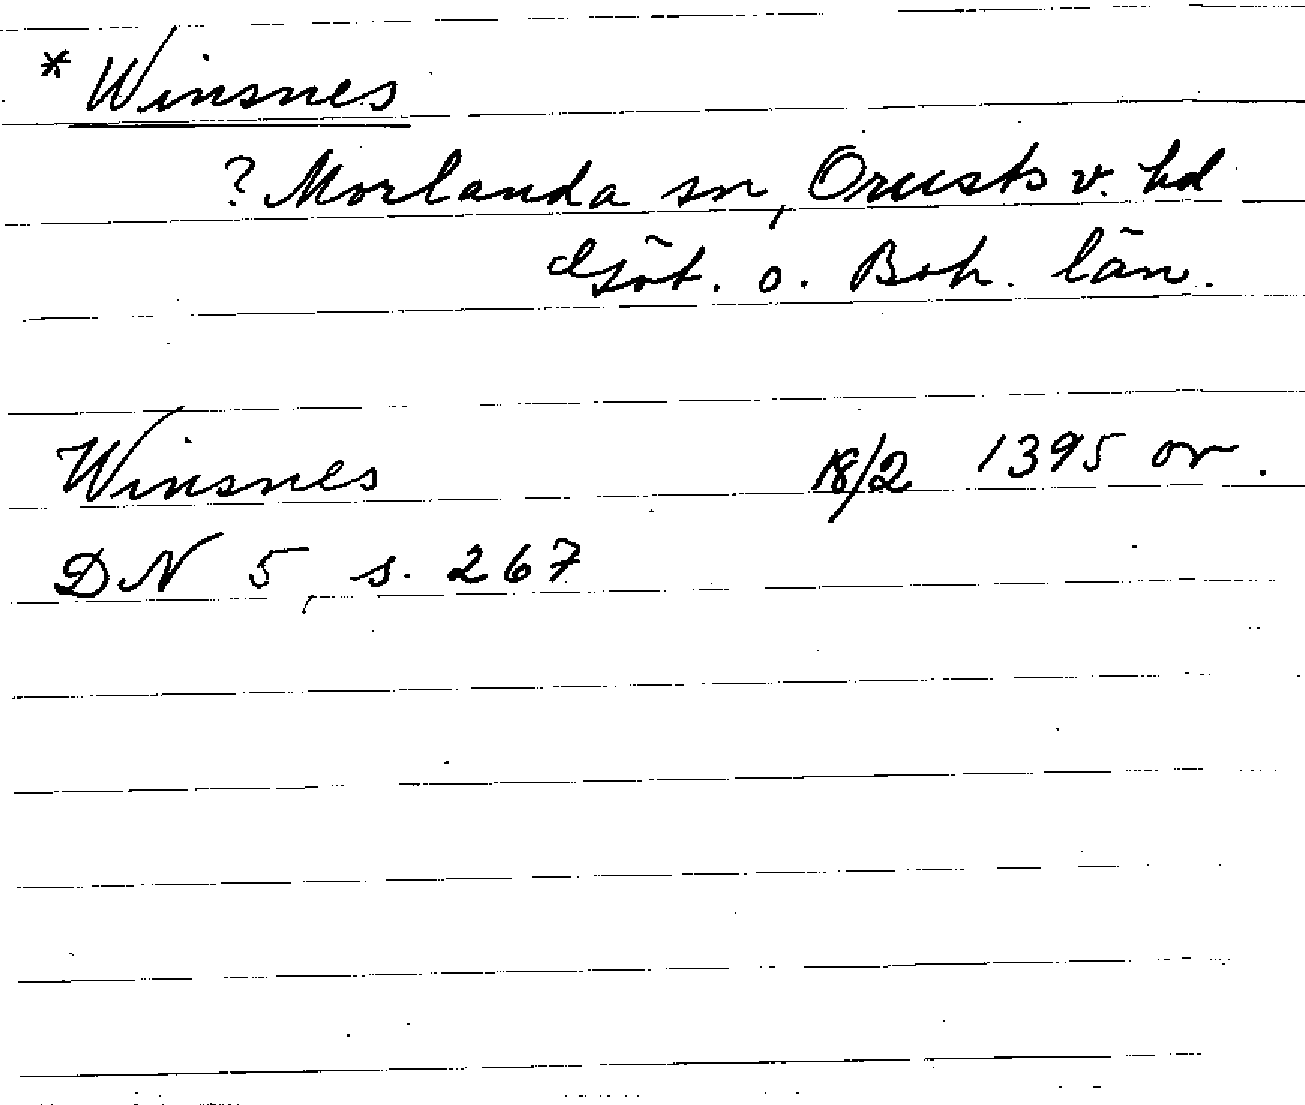 * Winsnes
? Morlanda sn, Orusts v. hd
Göt. o. Boh. län.
Winsnes 18/2 1395 or.
DN 5, s. 267